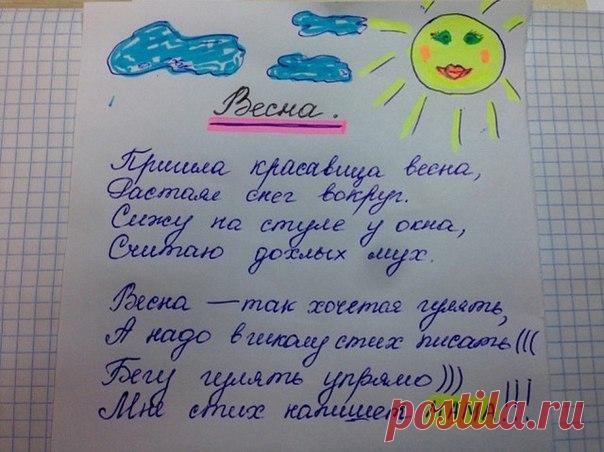 Весна.
Пришла красавица весна,
Растаял снег вокруг.
Сижу на стуле у окна,
Считаю дохлых мух.
Весна — так хочется гулять,
А надо в школу стих писать(((
Бегу гулять упрямо)))
Мне стих напишет МАМА!!!
postila.ru